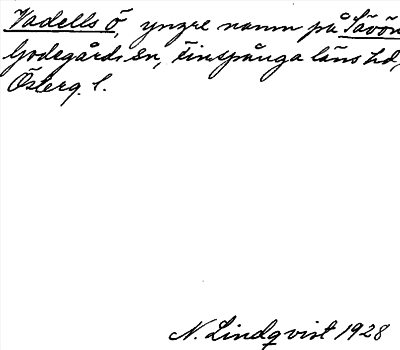 Vadells ö, yngre namn på Sävön
Godegårds sn, Finspånga läns hd,
Österg. l.
N. Lindqvist 1928